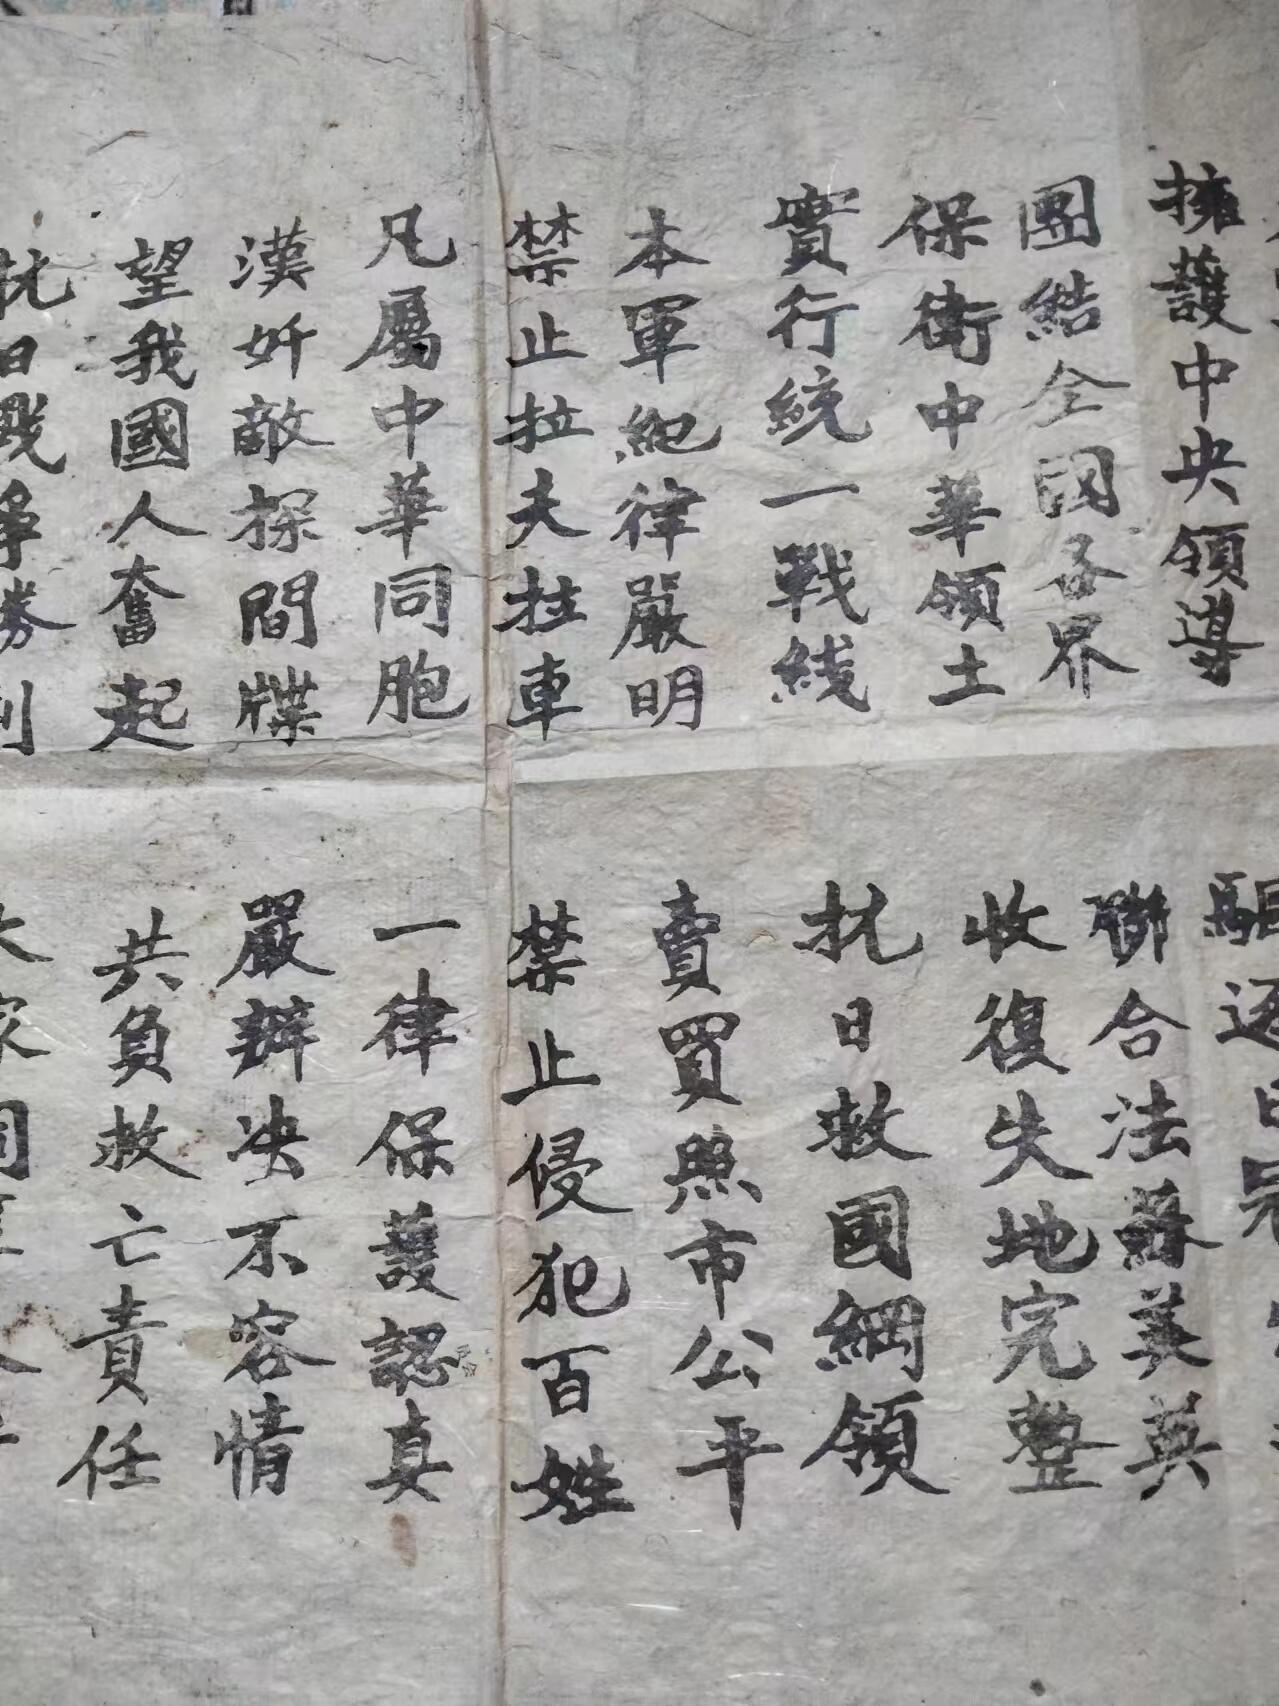 擁護中央領導
驅逐日寇
團結全國各界
聯合法蘇美英
保衛中華領土
收復失地完整
實行統一戰綫
抗日救國綱領
本軍紀律嚴明
賣買照市公平
禁止拉夫拉車
禁止侵犯百姓
凡屬中華同胞
一律保護認真
漢奸敵探間牒
嚴辦决不容情
望我國人奮起
共負救亡責任
抗日戰爭勝利
家同